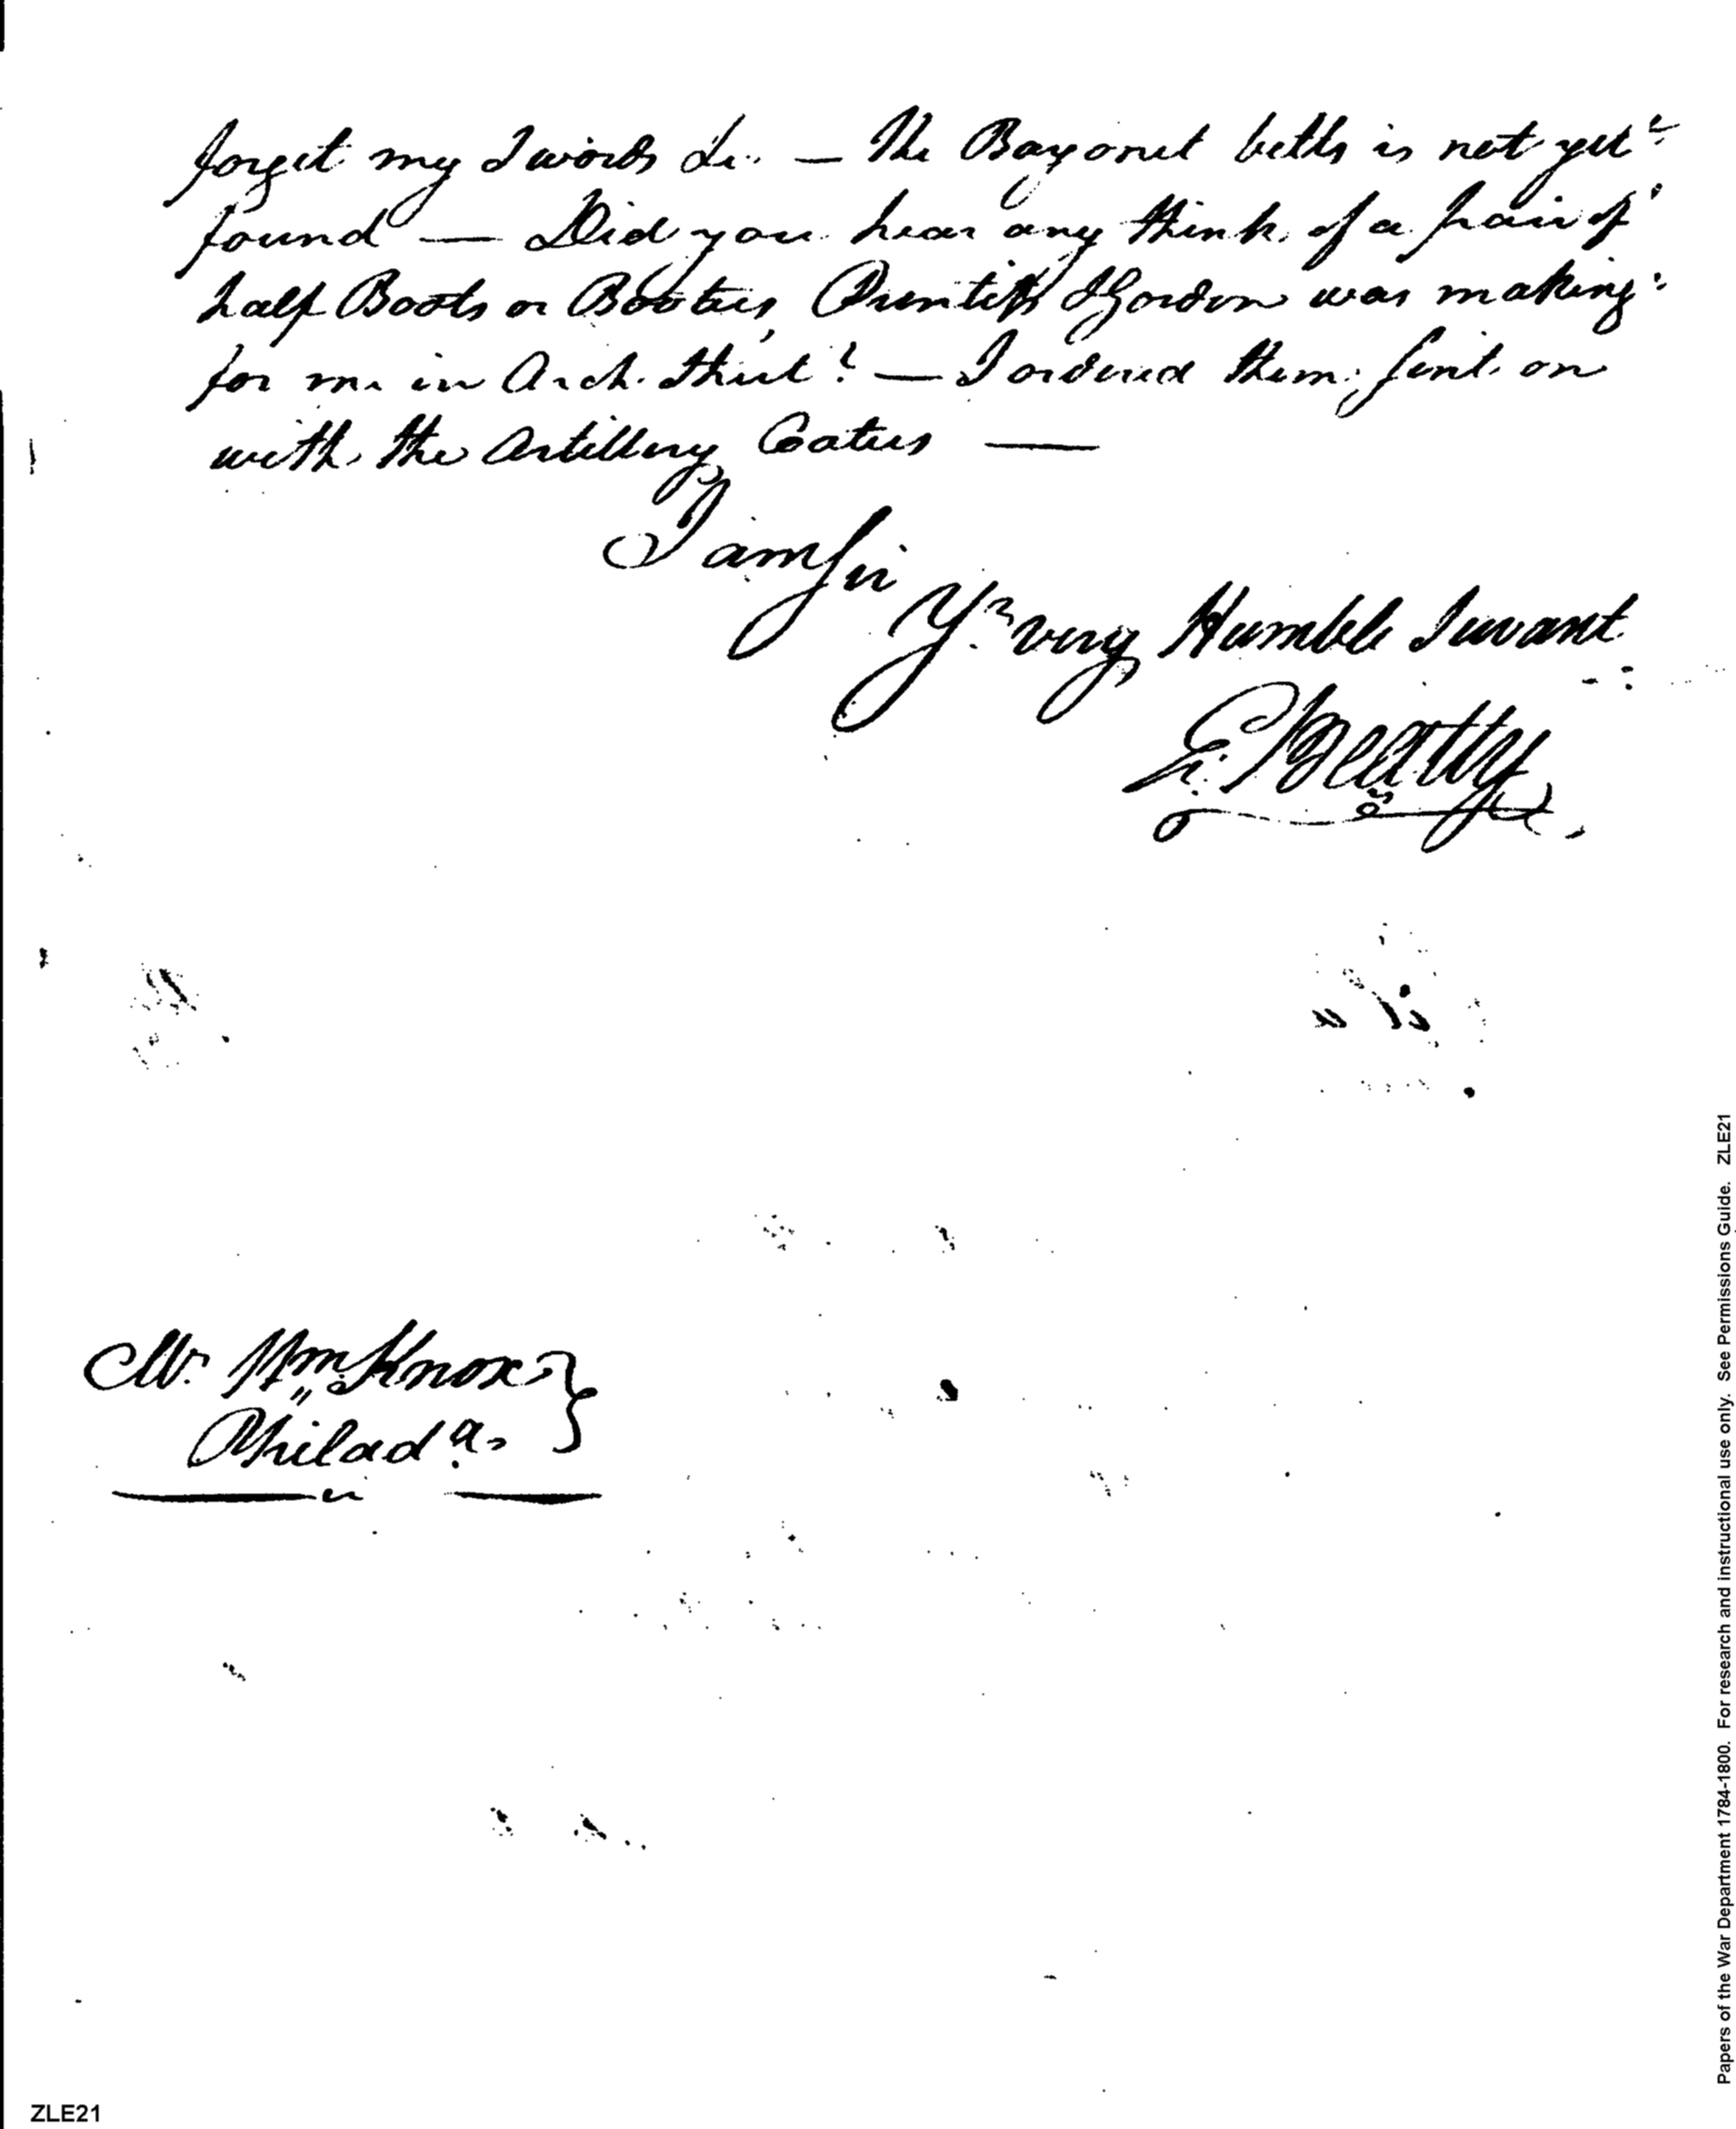 forget my Swords &c. — The Bayonet belts is not yet
found — Did you hear any think of a pair of
half Boots or Bootees, Prentiss & Gordon was making
for me in Arch Street? — I ordered them sent on
with the Artillery Coatees —
I am Sir
Yr. very Humble Servant
E. Beatty
Mr. Wm. Knox
Philada.
ZLE21
Papers of the War Department 1784-1800. For research and instructional use only. See Permissions Guide. ZLE21